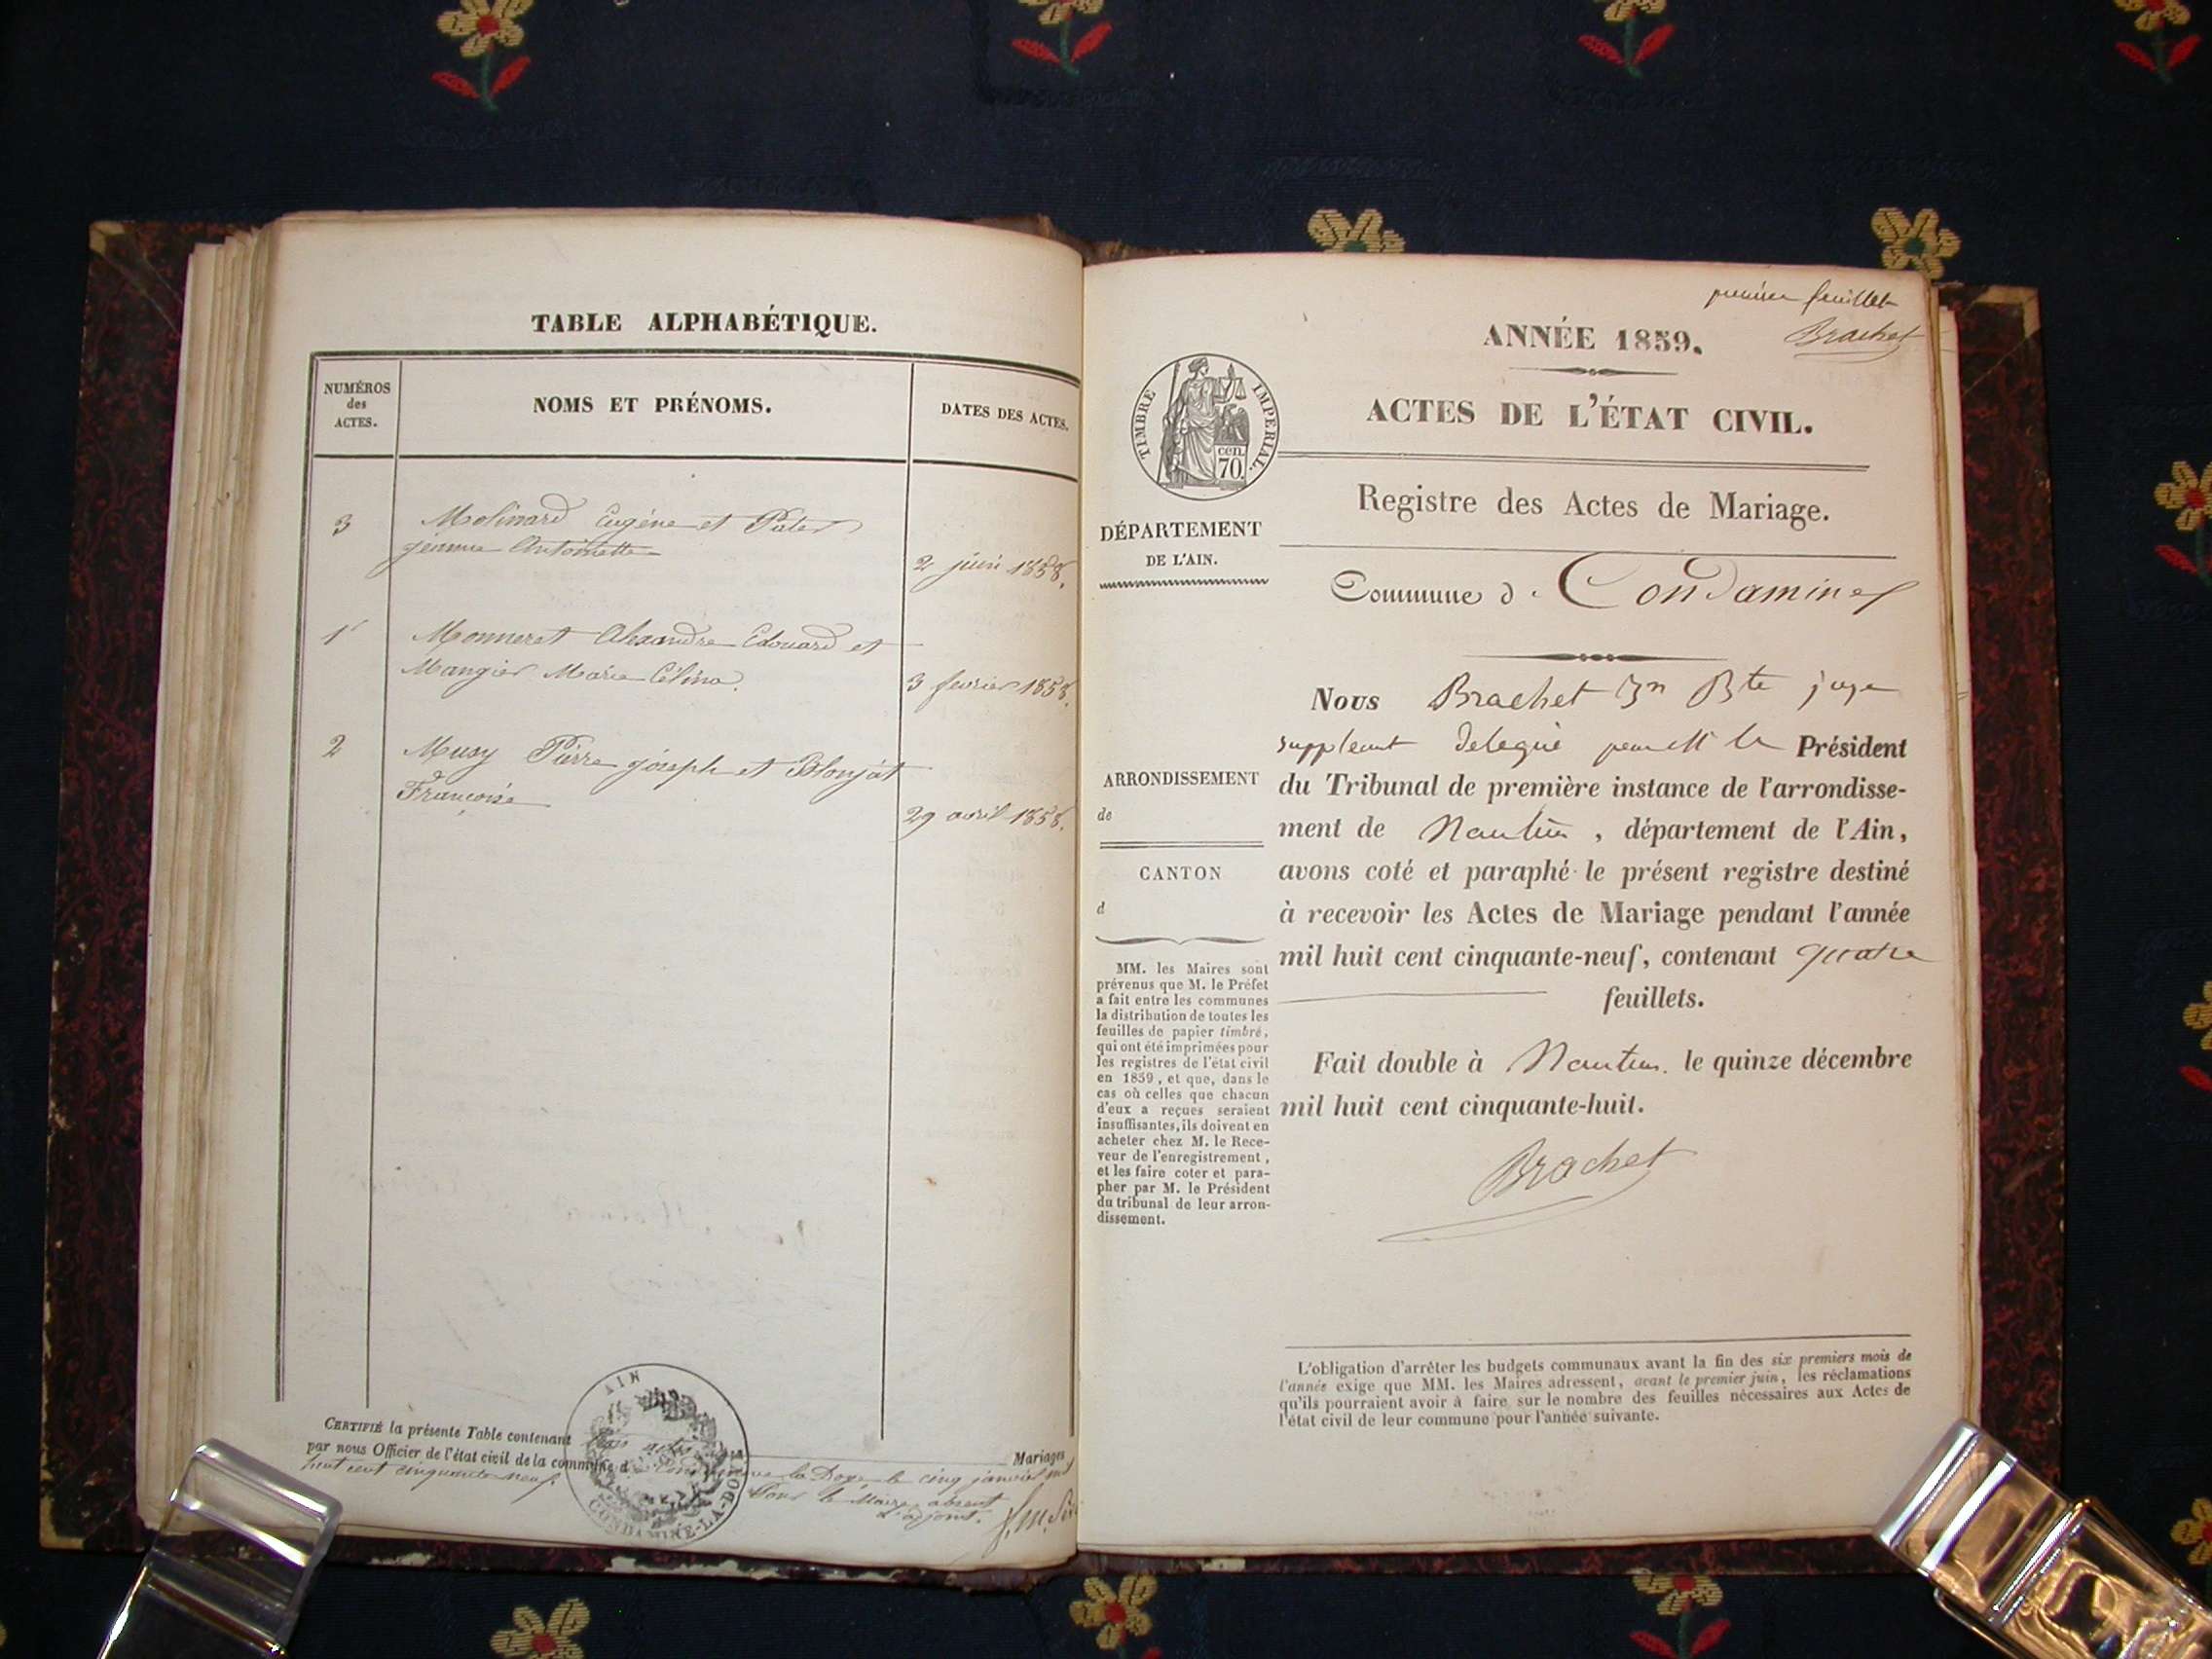 TABLE ALPHABÉTIQUE.
NUMÉROS
des
ACTES.
NOMS ET PRÉNOMS.
DATES DES ACTES.
3 Molinard Eugène et Pater
jeanne Antoinette
2 juin 1858.
1 Monneret Alexandre Edouard et
Mangier Marie Célina.
3 fevrier 1858.
2 Musy Pierre joseph et Blonjat
Françoise
29 avril 1858.
CERTIFIÉ la présente Table contenant trois actes Mariages
par nous Officier de l'état civil de la commune d Condamine la Doye le cinq janvier mil
huit cent cinquante neuf.
Pour le Maire absent
L'adjoint.
AIN
CONDAMINE-LA-DOYE
premier feuillet
Brachet
ANNÉE 1859.
ACTES DE L'ÉTAT CIVIL.
TIMBRE IMPERIAL.
cen.
70.
Registre des Actes de Mariage.
DÉPARTEMENT
DE L'AIN.
Commune d Condamine
Nous Brachet Bte juge
suppleant delegué par M le Président
du Tribunal de première instance de l'arrondisse-
ment de Nantua, département de l'Ain,
avons coté et paraphé le présent registre destiné
à recevoir les Actes de Mariage pendant l'année
mil huit cent cinquante-neuf, contenant quatre
feuillets.
Fait double à Nantua. le quinze décembre
mil huit cent cinquante-huit.
Brachet
ARRONDISSEMENT
de
CANTON
d
MM. les Maires sont
prévenus que M. le Préfet
a fait entre les communes
la distribution de toutes les
feuilles de papier timbré,
qui ont été imprimées pour
les registres de l'état civil
en 1859, et que, dans le
cas où celles que chacun
d'eux a reçues seraient
insuffisantes, ils doivent en
acheter chez M. le Rece-
veur de l'enregistrement,
et les faire coter et para-
pher par M. le Président
du tribunal de leur arron-
dissement.
L'obligation d'arrêter les budgets communaux avant la fin des six premiers mois de
l'année exige que MM. les Maires adressent, avant le premier juin, les réclamations
qu'ils pourraient avoir à faire sur le nombre des feuilles nécessaires aux Actes de
l'état civil de leur commune pour l'année suivante.